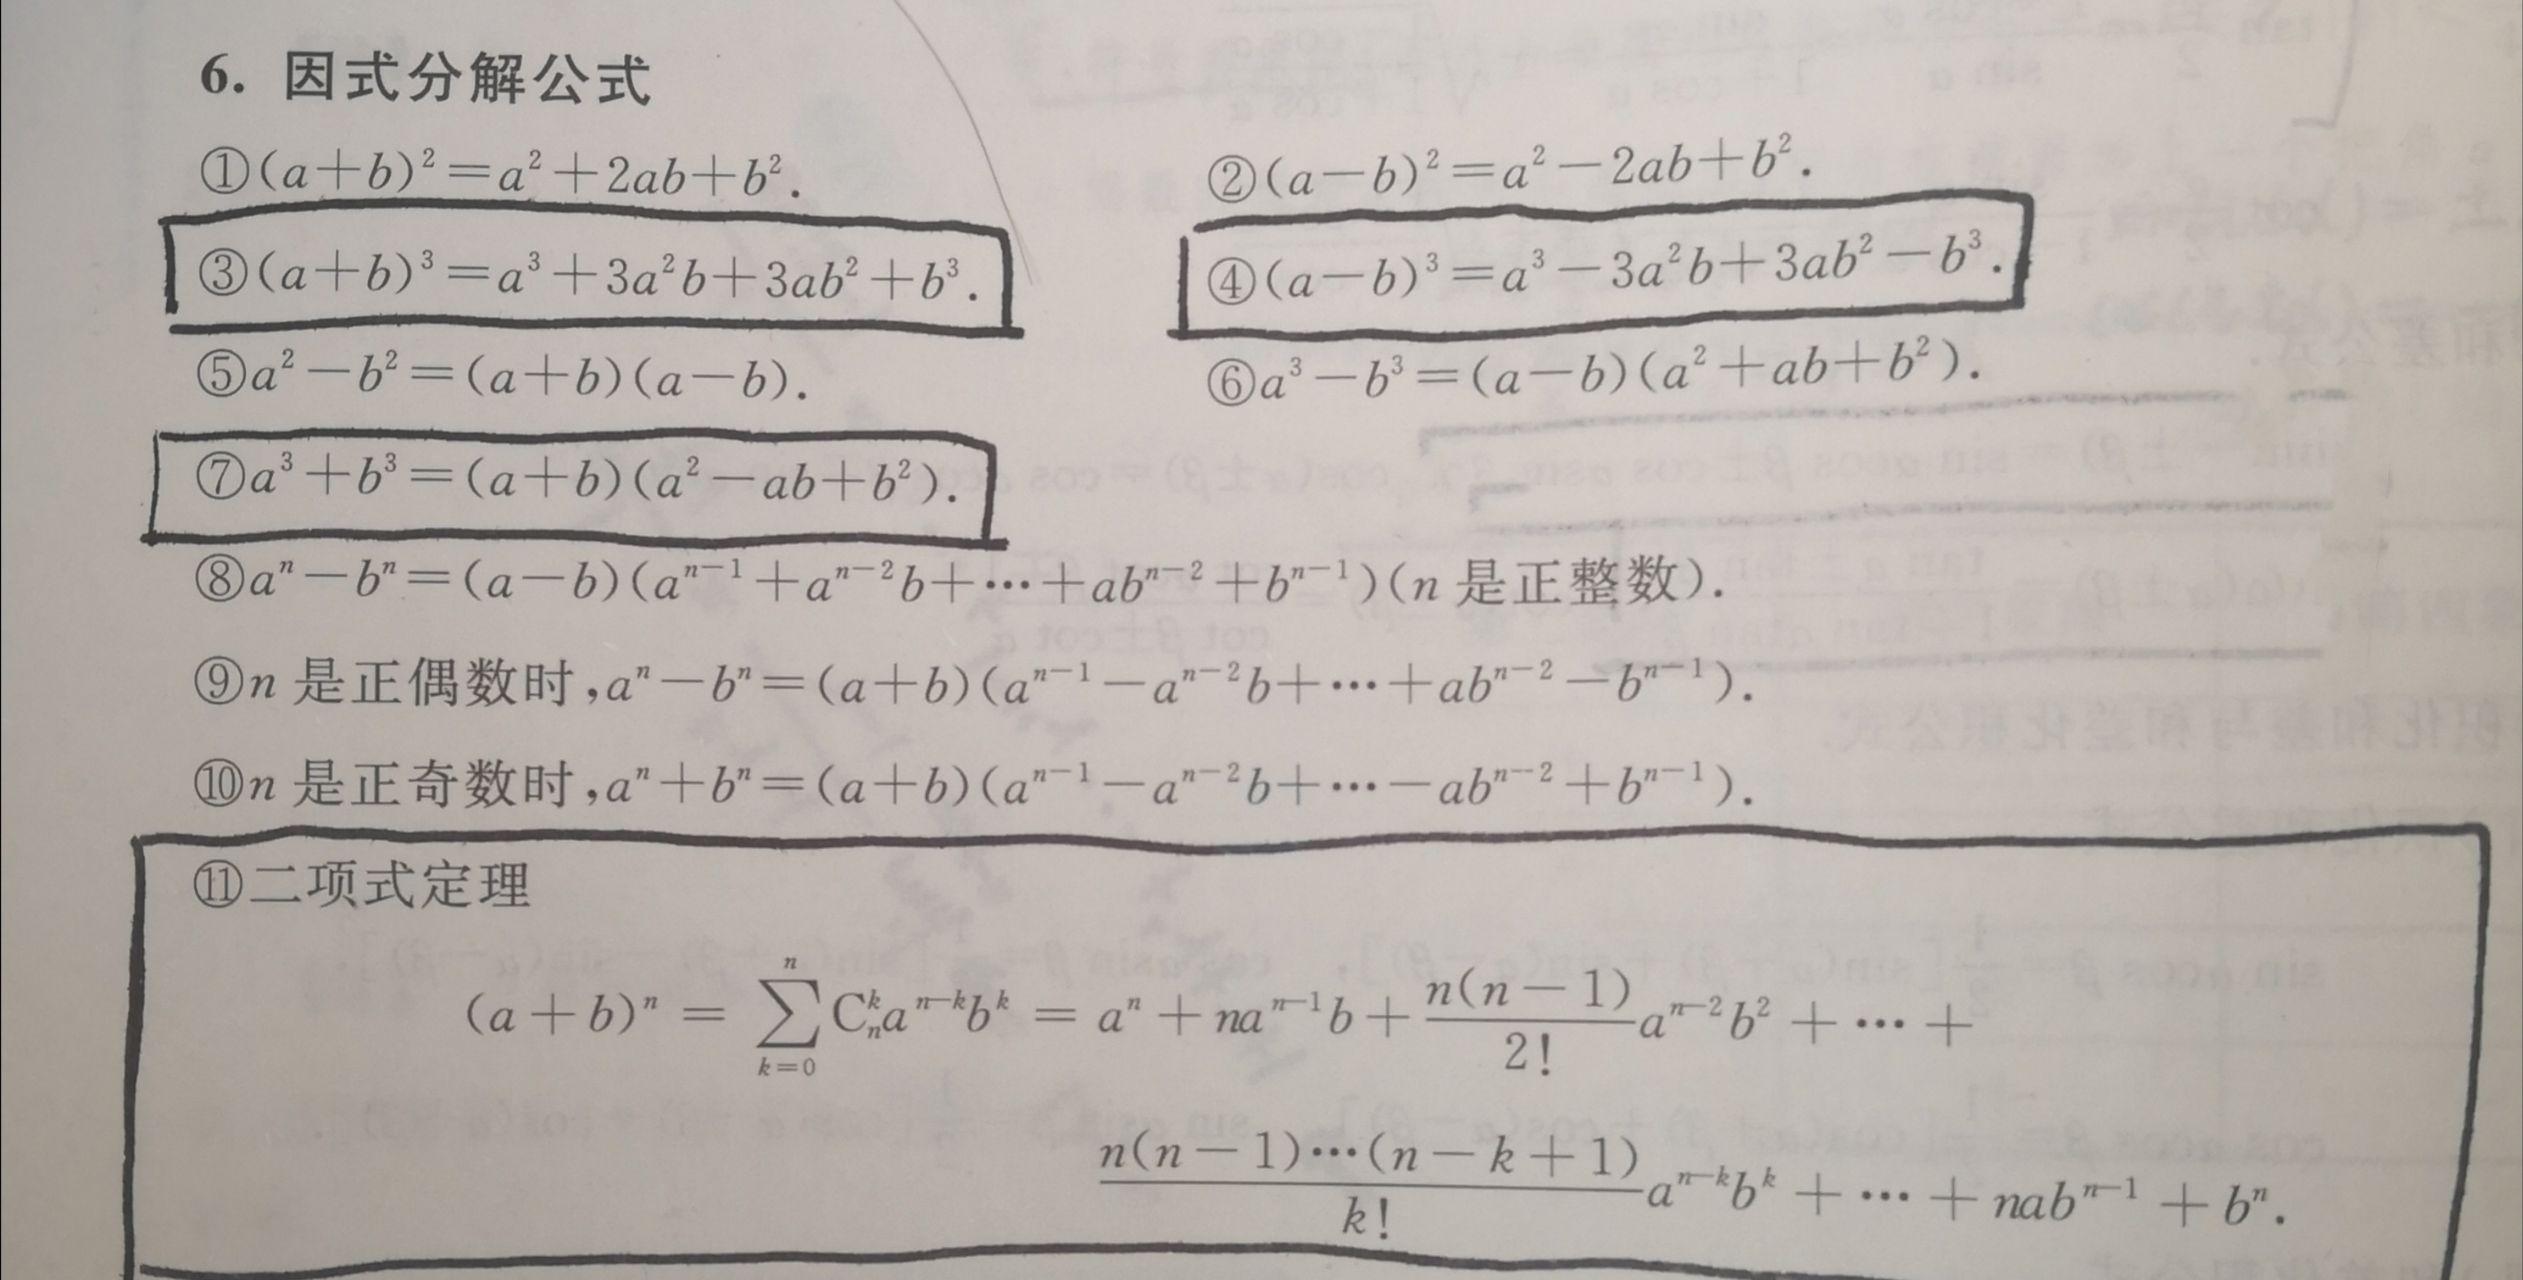 6. 因式分解公式
①(a+b)²=a²+2ab+b². ②(a-b)²=a²-2ab+b².
③(a+b)³=a³+3a²b+3ab²+b³. ④(a-b)³=a³-3a²b+3ab²-b³.
⑤a²-b²=(a+b)(a-b). ⑥a³-b³=(a-b)(a²+ab+b²).
⑦a³+b³=(a+b)(a²-ab+b²).
⑧aⁿ-bⁿ=(a-b)(aⁿ⁻¹+aⁿ⁻²b+⋯+abⁿ⁻²+bⁿ⁻¹)(n 是正整数).
⑨n 是正偶数时,aⁿ-bⁿ=(a+b)(aⁿ⁻¹-aⁿ⁻²b+⋯+abⁿ⁻²-bⁿ⁻¹).
⑩n 是正奇数时,aⁿ+bⁿ=(a+b)(aⁿ⁻¹-aⁿ⁻²b+⋯-abⁿ⁻²+bⁿ⁻¹).
⑪二项式定理
(a+b)^n = \sum_{k=0}^{n} C_n^k a^{n-k}b^k = a^n + na^{n-1}b + \frac{n(n-1)}{2!}a^{n-2}b^2 + ⋯ +
\frac{n(n-1)⋯(n-k+1)}{k!}a^{n-k}b^k + ⋯ + nab^{n-1} + b^n.